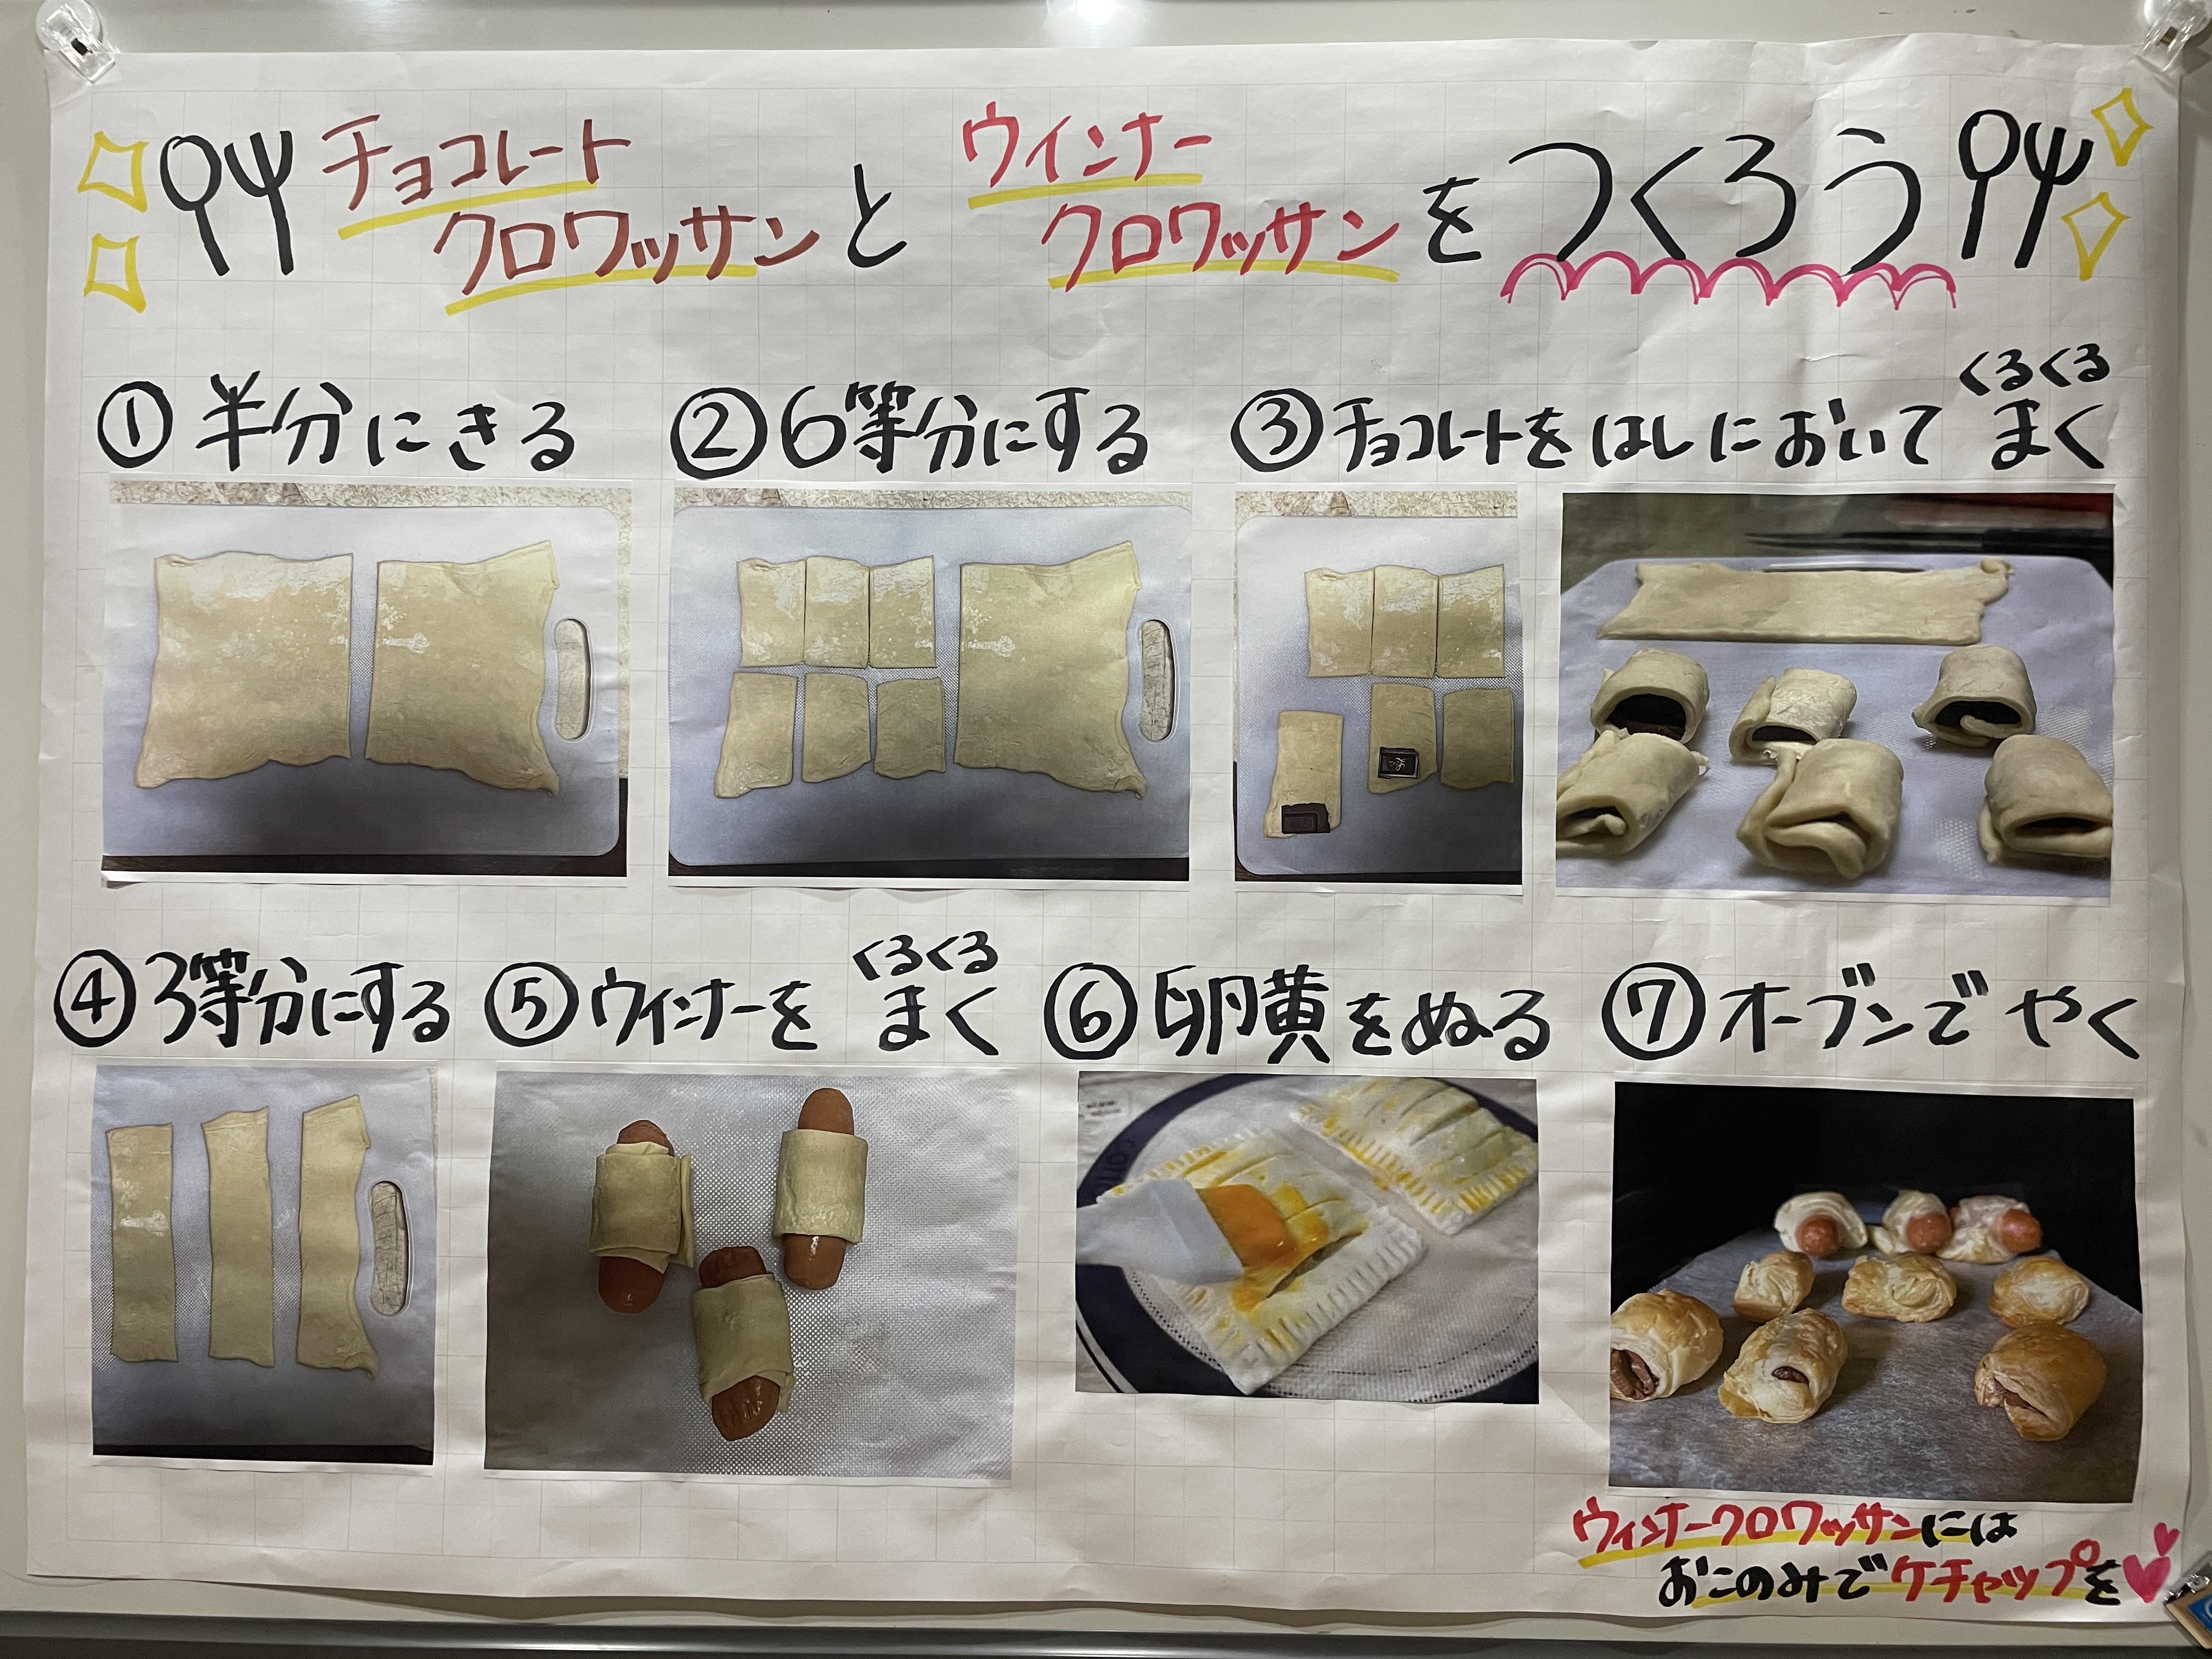 チョコレート
クロワッサンと
ウインナー
クロワッサンを
つくろう
①半分にきる
②6等分にする
くるくる
③チョコレートをはしにおいてまく
④3等分にする
くるくる
⑤ウィンナーをまく
⑥卵黄をぬる
⑦オーブンでやく
ウィンナークロワッサンには
おこのみでケチャップを